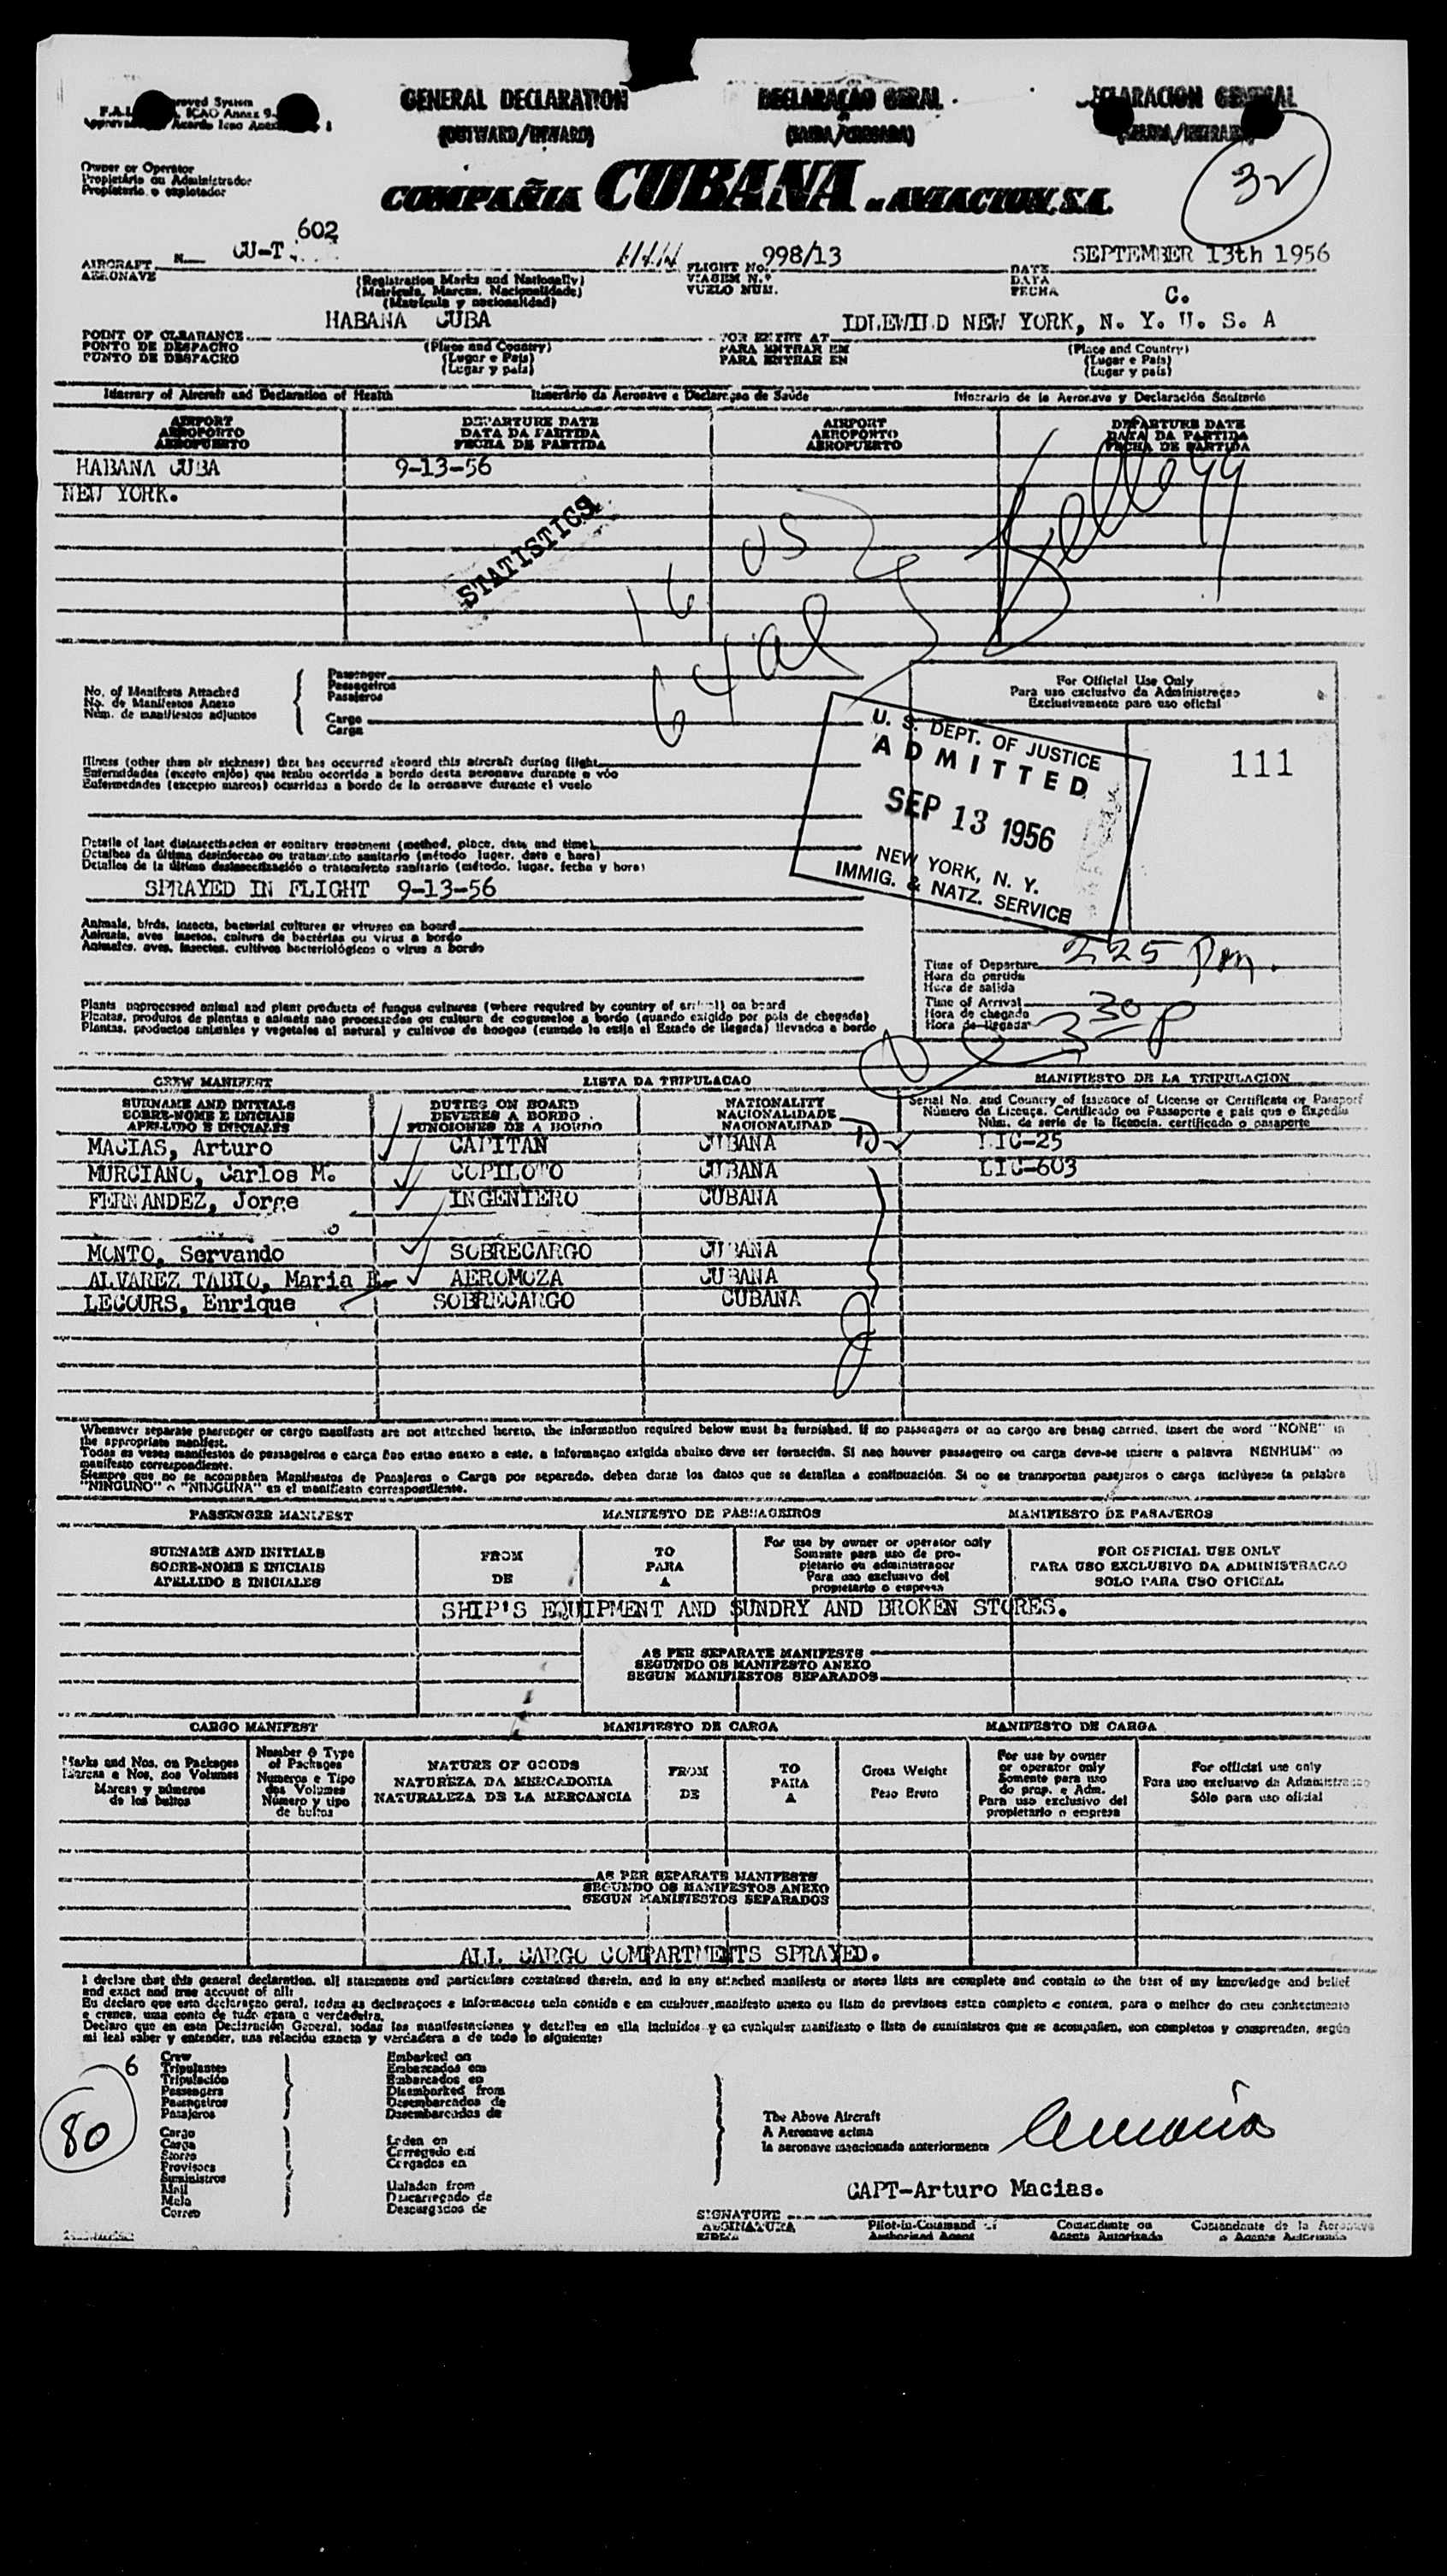 GENERAL DECLARATION
(OUTWARD/INWARD)
DECLARAÇÃO GERAL
roved System
ICAO Annex 9
Owner or Operator
Propietário ou Administrador
Propietario o explotador
COMPAÑIA CUBANA DE AVIACION, S.A.
32
AIRCRAFT
AERONAVE
N.
CU-T 602
(Registration Marks and Nationality)
(Matricula, Marcas, Nacionalidade)
(Matricula y nacionalidad)
FLIGHT No. 998/13
VIAGEM N.º
VUELO NUM.
DATE SEPTEMBER 13th 1956
DATA
FECHA
POINT OF CLEARANCE HABANA CUBA
PONTO DE DESPACHO
PUNTO DE DESPACHO
(Place and Country)
(Lugar e País)
(Lugar y país)
C.
FOR ENTRY AT IDLEWILD NEW YORK, N. Y. U. S. A
PARA ENTRAR EM
PARA ENTRAR EN
(Place and Country)
(Lugar e País)
(Lugar y país)
Itinerary of Aircraft and Declaration of Health
Itinerário da Aeronave e Declaração de Saúde
Itinerario de la Aeronave y Declaración Sanitaria
AIRPORT
AEROPORTO
AEROPUERTO
DEPARTURE DATE
DATA DA PARTIDA
FECHA DE PARTIDA
AIRPORT
AEROPORTO
AEROPUERTO
DEPARTURE DATE
DATA DA PARTIDA
FECHA DE PARTIDA
HABANA CUBA 9-13-56
NEW YORK.
STATISTICS
16 US
64 al
No. of Manifests Attached
No. de Manifestos Anexo
Núm. de manifiestos adjuntos
Passenger
Passageiros
Pasajeros
Cargo
Carga
For Official Use Only
Para uso exclusivo da Administração
Exclusivamente para uso oficial
111
U. S. DEPT. OF JUSTICE
ADMITTED
SEP 13 1956
NEW YORK, N. Y.
IMMIG. & NATZ. SERVICE
Illness (other than air sickness) that has occurred aboard this aircraft during flight
Enfermidades (exceto enjôo) que tenha ocorrido a bordo desta aeronave durante o vôo
Enfermedades (excepto mareos) ocurridas a bordo de la aeronave durante el vuelo
Details of last disinsectisation or sanitary treatment (method, place, date and time)
Detalhes da última desinfeccao ou tratamento sanitario (método, lugar, data e hora)
Detalles de la última desinsectización o tratamiento sanitario (método, lugar, fecha y hora)
SPRAYED IN FLIGHT 9-13-56
Animals, birds, insects, bacterial cultures or viruses on board
Animais, aves insetos, cultura de bactérias ou virus a bordo
Animales, aves, insectos, cultivos bacteriológicos o virus a bordo
Time of Departure 225 Pm.
Hora da partida
Hora de salida
Time of Arrival
Hora de chegada
Hora de llegada
Plants unprocessed animal and plant products of fungus cultures (where required by country of arrival) on board
Plantas, produtos de plantas e animais nao procesados ou cultura de cogumelos a bordo (quando exigido por país de chegada)
Plantas, productos animales y vegetales al natural y cultivos de hongos (cuando lo exija el Estado de llegada) llevados a bordo
CREW MANIFEST
LISTA DA TRIPULACAO
MANIFIESTO DE LA TRIPULACION
SURNAME AND INITIALS
SOBRE-NOME E INICIAIS
APELLIDO E INICIALES
DUTIES ON BOARD
DEVERES A BORDO
FUNCIONES DE A BORDO
NATIONALITY
NACIONALIDADE
NACIONALIDAD
Serial No. and Country of Issuance of License or Certificate or Passport
Número da Licença, Certificado ou Passaporte e pais que o Expediu
Núm. de serie de la licencia, certificado o pasaporte
MACIAS, Arturo CAPITAN CUBANA LIC-25
MURCIANO, Carlos M. COPILOTO CUBANA LIC-603
FERNANDEZ, Jorge INGENIERO CUBANA
MONTO, Servando SOBRECARGO CUBANA
ALVAREZ TABIO, Maria E. AEROMOZA CUBANA
LECOURS, Enrique SOBRECARGO CUBANA
Whenever separate passenger or cargo manifests are not attached hereto, the information required below must be furnished. If no passengers or no cargo are being carried, insert the word "NONE" in
the appropriate manifest.
Todas as vezes manifestos de passageiros e carga nao estao anexo a este, a informaçao exigida abaixo deve ser fornecida. Si nao houver passageiro ou carga deve-se inserir a palavra NENHUM" no
manifesto correspondiente.
Siempre que no se acompañen Manifiestos de Pasajeros o Carga por separado, deben darse los datos que se detallan a continuación. Si no se transportan pasajeros o carga inclúyese la palabra
"NINGUNO" o "NINGUNA" en el manifiesto correspondiente.
PASSENGER MANIFEST
MANIFESTO DE PASSAGEIROS
MANIFIESTO DE PASAJEROS
SURNAME AND INITIALS
SOBRE-NOME E INICIAIS
APELLIDO E INICIALES
FROM
DE
TO
PARA
A
For use by owner or operator only
Somente para uso de pro-
pietario ou administrador
Para uso exclusivo del
propietario o empresa
FOR OFFICIAL USE ONLY
PARA USO EXCLUSIVO DA ADMINISTRACAO
SOLO PARA USO OFICIAL
SHIP'S EQUIPMENT AND SUNDRY AND BROKEN STORES.
AS PER SEPARATE MANIFESTS
SEGUNDO OS MANIFESTO ANEXO
SEGUN MANIFIESTOS SEPARADOS
CARGO MANIFEST
MANIFIESTO DE CARGA
MANIFESTO DE CARGA
Marks and Nos. on Packages
Marcas e Nos. dos Volumes
Marcas y números
de los bultos
Number & Type
of Packages
Numeros e Tipo
dos Volumes
Número y tipo
de bultos
NATURE OF GOODS
NATUREZA DA MERCADORIA
NATURALEZA DE LA MERCANCIA
FROM
DE
TO
PARA
A
Gross Weight
Peso Bruto
For use by owner
or operator only
Somente para uso
do prop. e Adm.
Para uso exclusivo del
propietario o empresa
For official use only
Para uso exclusivo da Administracao
Sólo para uso oficial
AS PER SEPARATE MANIFESTS
SEGUNDO OS MANIFESTOS ANEXO
SEGUN MANIFIESTOS SEPARADOS
ALL CARGO COMPARTMENTS SPRAYED.
I declare that this general declaration, all statements and particulars contained therein, and in any attached manifests or stores lists are complete and contain to the best of my knowledge and belief
and exact and true account of all:
Eu declaro que esta declaraçao geral, todas as declaraçoes e informacoes nela contida e em cualquer manifesto anexo ou lista de previsoes estan completo e contem, para o melhor do meu conhecimento
e crenca, uma conto de tudo exata e verdadeira.
Declaro que en esta Declaración General, todas las manifestaciones y detalles en ella incluídos y en cualquier manifiesto o lista de suministros que se acompañen, son completos y comprenden, según
mi leal saber y entender, una relación exacta y verdadera a de todo lo siguiente:
6
80
Crew
Tripulantes
Tripulación
Passengers
Passageiros
Pasajeros
Cargo
Carga
Stores
Provisoes
Suministros
Mail
Mala
Correo
Embarked on
Embarcados em
Embarcados en
Disembarked from
Desembarcados de
Desembarcados de
Laden on
Carregado em
Cargados en
Unladen from
Descarregado de
Descargados de
The Above Aircraft
A Aeronave acima
la aeronave mencionada anteriormente
CAPT-Arturo Macias.
SIGNATURE
ASSINATURA
FIRMA
Pilot-in-Command
Authorized Agent
Comandante ou
Agente Autorizado
Comandante de la Aeronave
o Agente Autorizado